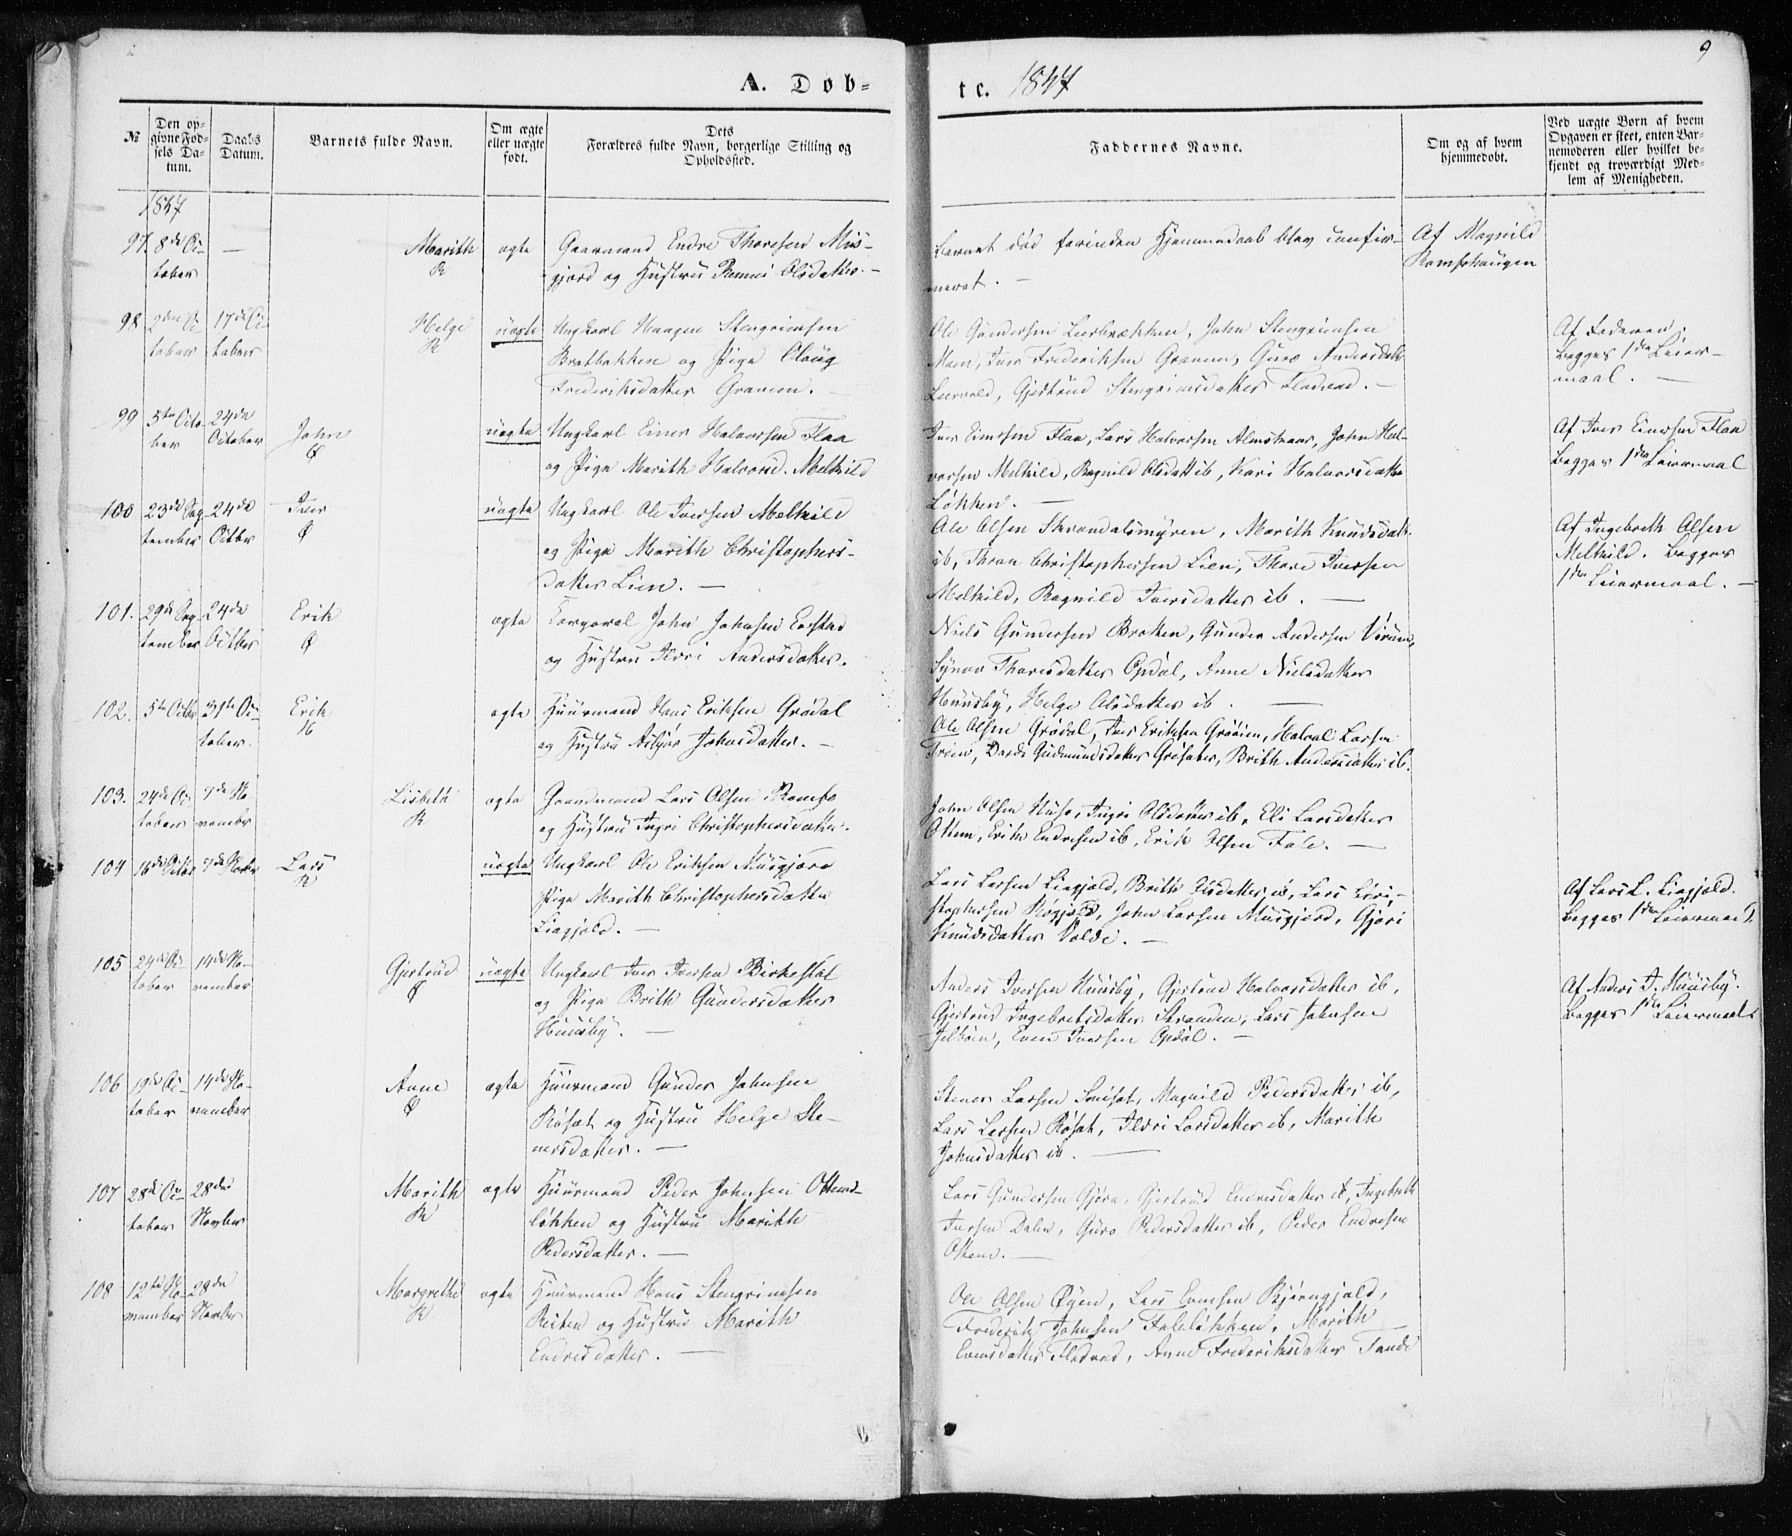 A. Døb-
te. 1847
9
№
Den op-
givne Fød-
sels Da-
tum.
Daabs
Datum.
Barnets fulde Navn.
Om ægte
eller uægte
født.
Dets
Forældres fulde Navn, borgerlige Stilling og
Opholdssted.
Faddernes Navne.
Om og af hvem
hjemmedøbt.
Ved uægte Børn af hvem
Opgaven er skeet, enten Bar-
nemoderen eller hvilket be-
kjendt og troværdigt Med-
lem af Menigheden.
1847
97. 8de Oc-
tober
—
Marith
R
ægte
Gaarmand Endre Thoresen Mis-
gjerd og Hustru Olsdatter. —
Barnet død forinden Hjemmedaab blev confir-
meret. —
Af Magnild
Romfohaugen
98 2den Oc-
tober
17de Oc-
tober
Helge
R
uægte
Ungkarl Haagen Stengrimsen
Bratbakken og Pige Olaug
Frederiksdatter Gravem. —
Ole Gundersen Leerbrækken, John Stengrimsen
Moen, Iver Frederiksen Gravem, Guro Andersdatter
Leervold, Gjertrud Stengrimsdatter Flatvad. —
Af Faderen.
Begges 1ste Leier-
maal. —
99 5te Octo-
ber
24de
October
John
Ø
uægte
Ungkarl Einer Halvorsen Flaa
og Pige Marith Halvorsd. Melkild
Iver Einersen Flaa, Lars Halvorsen Almskaar, John Hal-
vorsen Melkild, Ragnild Olsdatt ib, Kari Halvorsdatter
Løkken. —
Af Iver Einersen Flaa
Begges 1ste Leiermaal
100 23de Sep-
tember
24de
Octbr
Iver
Ø
uægte
Ungkarl Ole Iversen Melkild
og Pige Marith Christophers-
datter Lien. —
Ole Olsen Throndalsmyren, Marith Knudsdatt.
ib, Thron Christophersen Lien, Thore Iversen
Melkild, Ragnild Iversdatter ib. —
Af Ingebreth Olsen
Melkild. Begges
1ste Leiermaal. —
101. 29de Sep-
tember
24de
Octbr
Erik
Ø
ægte
Corporal John Johnsen
og Hustru Ildri Andersdatter.
Niels Gundersen Brøken, Gunder Andersen Virum,
Synør Thoresdatter Opdøl, Anne Nielsdatter
Huusby, Helge Olsdatter ib. —
102. 5te Octbr
31te Oc-
tober
Erik
H
ægte
Huusmand Hans Eriksen Grødal
og Hustru Johnsdatter. —
Ole Olsen Grødal, Iver Eriksen Grøvien, Halvar Larsen
Dordi Gudmundsdatter Grøsæter, Brith Andersdatter ib.
103. 24de Oc-
tober
7de No-
vember
Lisbeth
R
ægte
Gaardmand Lars Olsen Romfo
og Hustru Ingri Christophersdatter.
John Olsen Huse, Ingri Olsdatter ib, Eli Larsdatter
Ottem, Erik Endresen ib, Erik Olsen Fale. —
104 16de Octbr
7de Novbr
Lars
R
uægte
Ungkarl Ole Eriksen Musgjerd
Pige Marith Christophersdatter
Liagjeld. —
Lars Larsen Liagjeld, Brith Olsdatter ib, Lars Chri-
stophersen Røgjeld, John Larsen Musgjerd, Gjøri
Knudsdatter Volde. —
Af Lars L. Liagjeld.
Begges 1ste Leiermaal
105 24de Oc-
tober
14de No-
vember
Gjertrud
Ø
uægte
Ungkarl Iver Iversen Birkestøl
og Pige Brith Gundersdatter
Huusby. —
Anders Iversen Huusby, Gjertrud Halvorsdatter ib,
Gjertrud Ingebretsdatter Stranden, Lars Johnsen
Even Iversen Opdøl. —
Af Anders I. Huusby.
Begges 1ste Leiermaal
106 19de Oc-
tober
14de No-
vember
Anne
Ø
ægte
Huusmand Gunder Johnsen
Røsæt og Hustru Helge Ste-
nersdatter. —
Stener Larsen Snisæt, Magnild Pedersdatter ib,
Lars Larsen Røsæt, Ildri Larsdatter ib, Marith
Johnsdatter ib. —
107 28de Oc-
tober
28de
Novber
Marith
R
ægte
Huusmand Peder Johnsen Ottems-
løkken og Hustru Marith
Pedersdatter. —
Lars Gundersen Gjøra, Gjertrud Einersdatter ib, Ingebreth
Iversen Dalen, Guro Pedersdatter ib, Peder Endresen
Ottem. —
108 12te No-
vember
28de
Novber
Margrethe
R
ægte
Huusmand Hans Stengrimsen
Reiten og Hustru Marith
Endresdatter. —
Ole Olsen Øyen, Lars Evensen Bjørngjeld,
Frederik Johnsen Faleløkken, Marith
Evensdatter Flatvad, Anne Frederiksdatter Fande